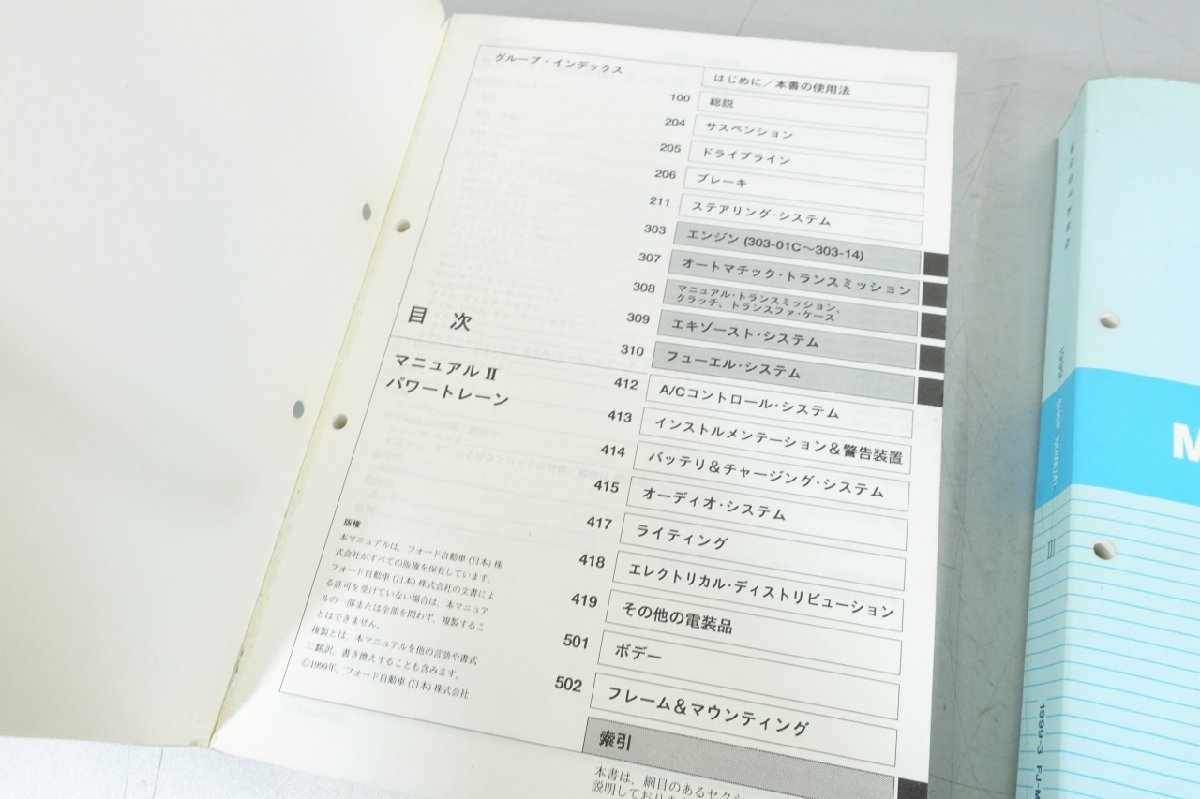 グループ・インデックス
はじめに/本書の使用法
100 総説
204 サスペンション
205 ドライブライン
206 ブレーキ
211 ステアリング・システム
303 エンジン (303-01C〜303-14)
307 オートマチック・トランスミッション
308 マニュアル・トランスミッション、
クラッチ、トランスファ・ケース
309 エキゾースト・システム
310 フューエル・システム
412 A/Cコントロール・システム
413 インストルメンテーション&警告装置
414 バッテリ&チャージング・システム
415 オーディオ・システム
417 ライティング
418 エレクトリカル・ディストリビューション
419 その他の電装品
501 ボデー
502 フレーム&マウンティング
索引
本書は、細目のあるセクシ
説明しており
目 次
マニュアル II
パワートレーン
版権
本マニュアルは、フォード自動車(日本)株
式会社がすべての版権を保有しています。
フォード自動車(日本)株式会社の文書によ
る許可を受けていない場合は、本マニュア
ルの一部または全部を問わず、複製するこ
とはできません。
複製とは、本マニュアルを他の言語や書式
に翻訳、書き換えすることも含みます。
©1999年、フォード自動車(日本)株式会社
M
1999
SHOP MANUAL
III
1999-3 FJ-M